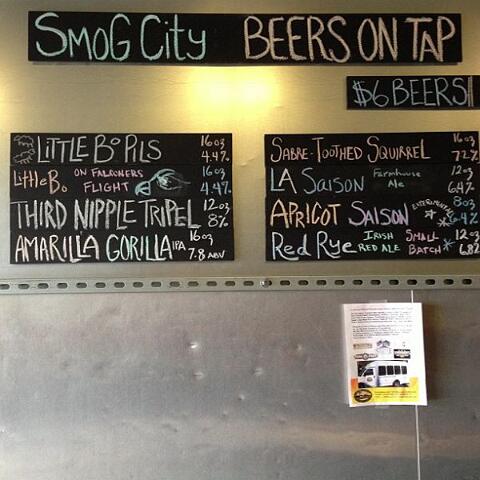 SMOG CITY BEERS ON TAP
$6 BEERS!
LITTLE BO PILS 16oz 4.4%
LITTLE Bo ON FALCONERS FLIGHT 16oz 4.4%
THIRD NIPPLE TRIPEL 12oz 8%
AMARILLA GORILLA IPA 16oz 7.8 ABV
SABRE-TOOTHED SQUIRREL 16oz 7.2%
LA SAISON Farmhouse Ale 12oz 6.4%
APRICOT SAISON EXPERIMENTAL 8oz 6.4%
Red Rye IRISH RED ALE SMALL BATCH 12oz 6.8%